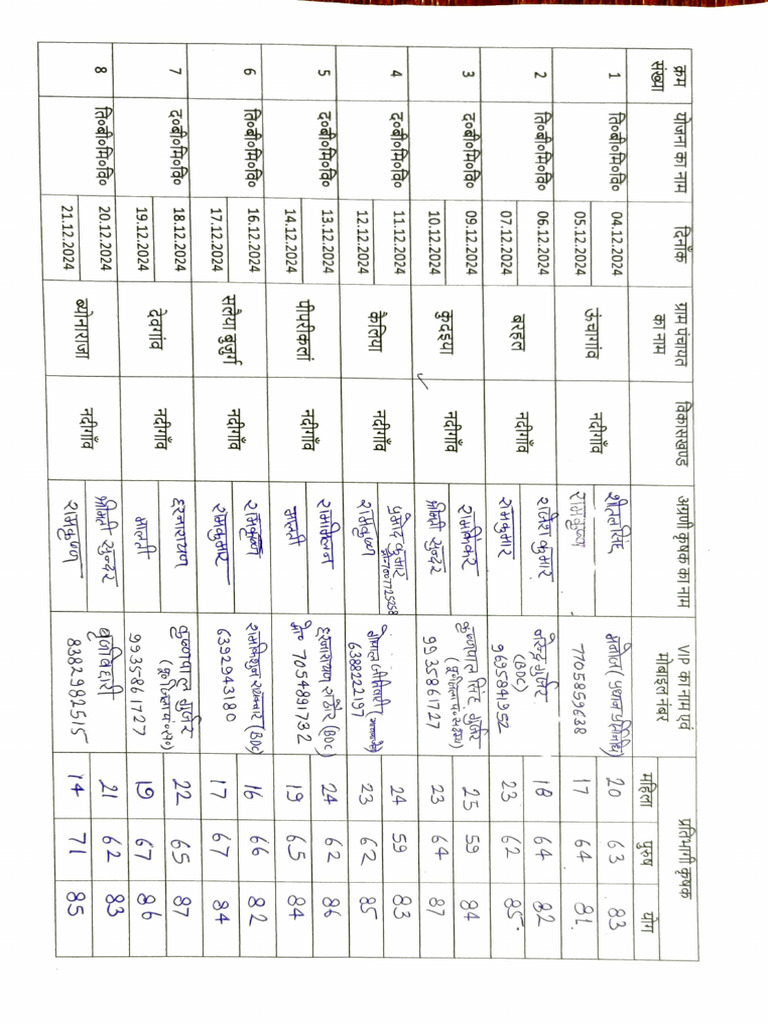 क्रम संख्या | योजना का नाम | दिनाँक | ग्राम पंचायत का नाम | विकासखण्ड | अग्रणी कृषक का नाम | VIP का नाम एवं मोबाइल नंबर | प्रतिभागी कृषक
महिला | पुरुष | योग
1 | ति०बी०मि०वि० | 04.12.2024 | ऊंचागांव | नदीगाँव | शीतलसिंह | मनोज (प्रधान प्रतिनिधि) | 20 | 63 | 83
05.12.2024 | रामकृष्ण | 7705859638 | 17 | 64 | 81
2 | ति०बी०मि०वि० | 06.12.2024 | बरहल | नदीगाँव | राजेश कुमार | नरेन्द्र गुर्जर (BDC) | 18 | 64 | 82
07.12.2024 | रामकुमार | 9695841352 | 23 | 62 | 85
3 | द०बी०मि०वि० | 09.12.2024 | कुदइया | नदीगाँव | रामकिंकर | कृष्णपाल सिंह गुर्जर | 25 | 59 | 84
10.12.2024 | श्रीमती सुन्दर | 9935861727 | 23 | 64 | 87
4 | द०बी०मि०वि० | 11.12.2024 | कैलिया | नदीगाँव | प्रमोद कुमार | 24 | 59 | 83
मो०-7007725258
12.12.2024 | रामकृष्ण | 6388222197 | 23 | 62 | 85
5 | द०बी०मि०वि० | 13.12.2024 | पीपरीकलां | नदीगाँव | हरनारायण राठौर (BDC) | 24 | 62 | 86
14.12.2024 | मालती | मो० 7054891732 | 19 | 65 | 84
6 | ति०बी०मि०वि० | 16.12.2024 | सलैया बुजुर्ग | नदीगाँव | रामकृष्ण | (BDC) | 16 | 66 | 82
17.12.2024 | रामकुमार | 6392943180 | 17 | 67 | 84
7 | द०बी०मि०वि० | 18.12.2024 | देवगांव | नदीगाँव | हरनारायण | कृष्णपाल गुर्जर | 22 | 65 | 87
(पू० जि० पं० स०)
19.12.2024 | मालती | 9935861727 | 19 | 67 | 86
8 | ति०बी०मि०वि० | 20.12.2024 | ब्योनाराजा | नदीगाँव | श्रीमती सुन्दर | बृजबिहारी | 21 | 62 | 83
21.12.2024 | रामकृष्ण | 8382982515 | 14 | 71 | 85